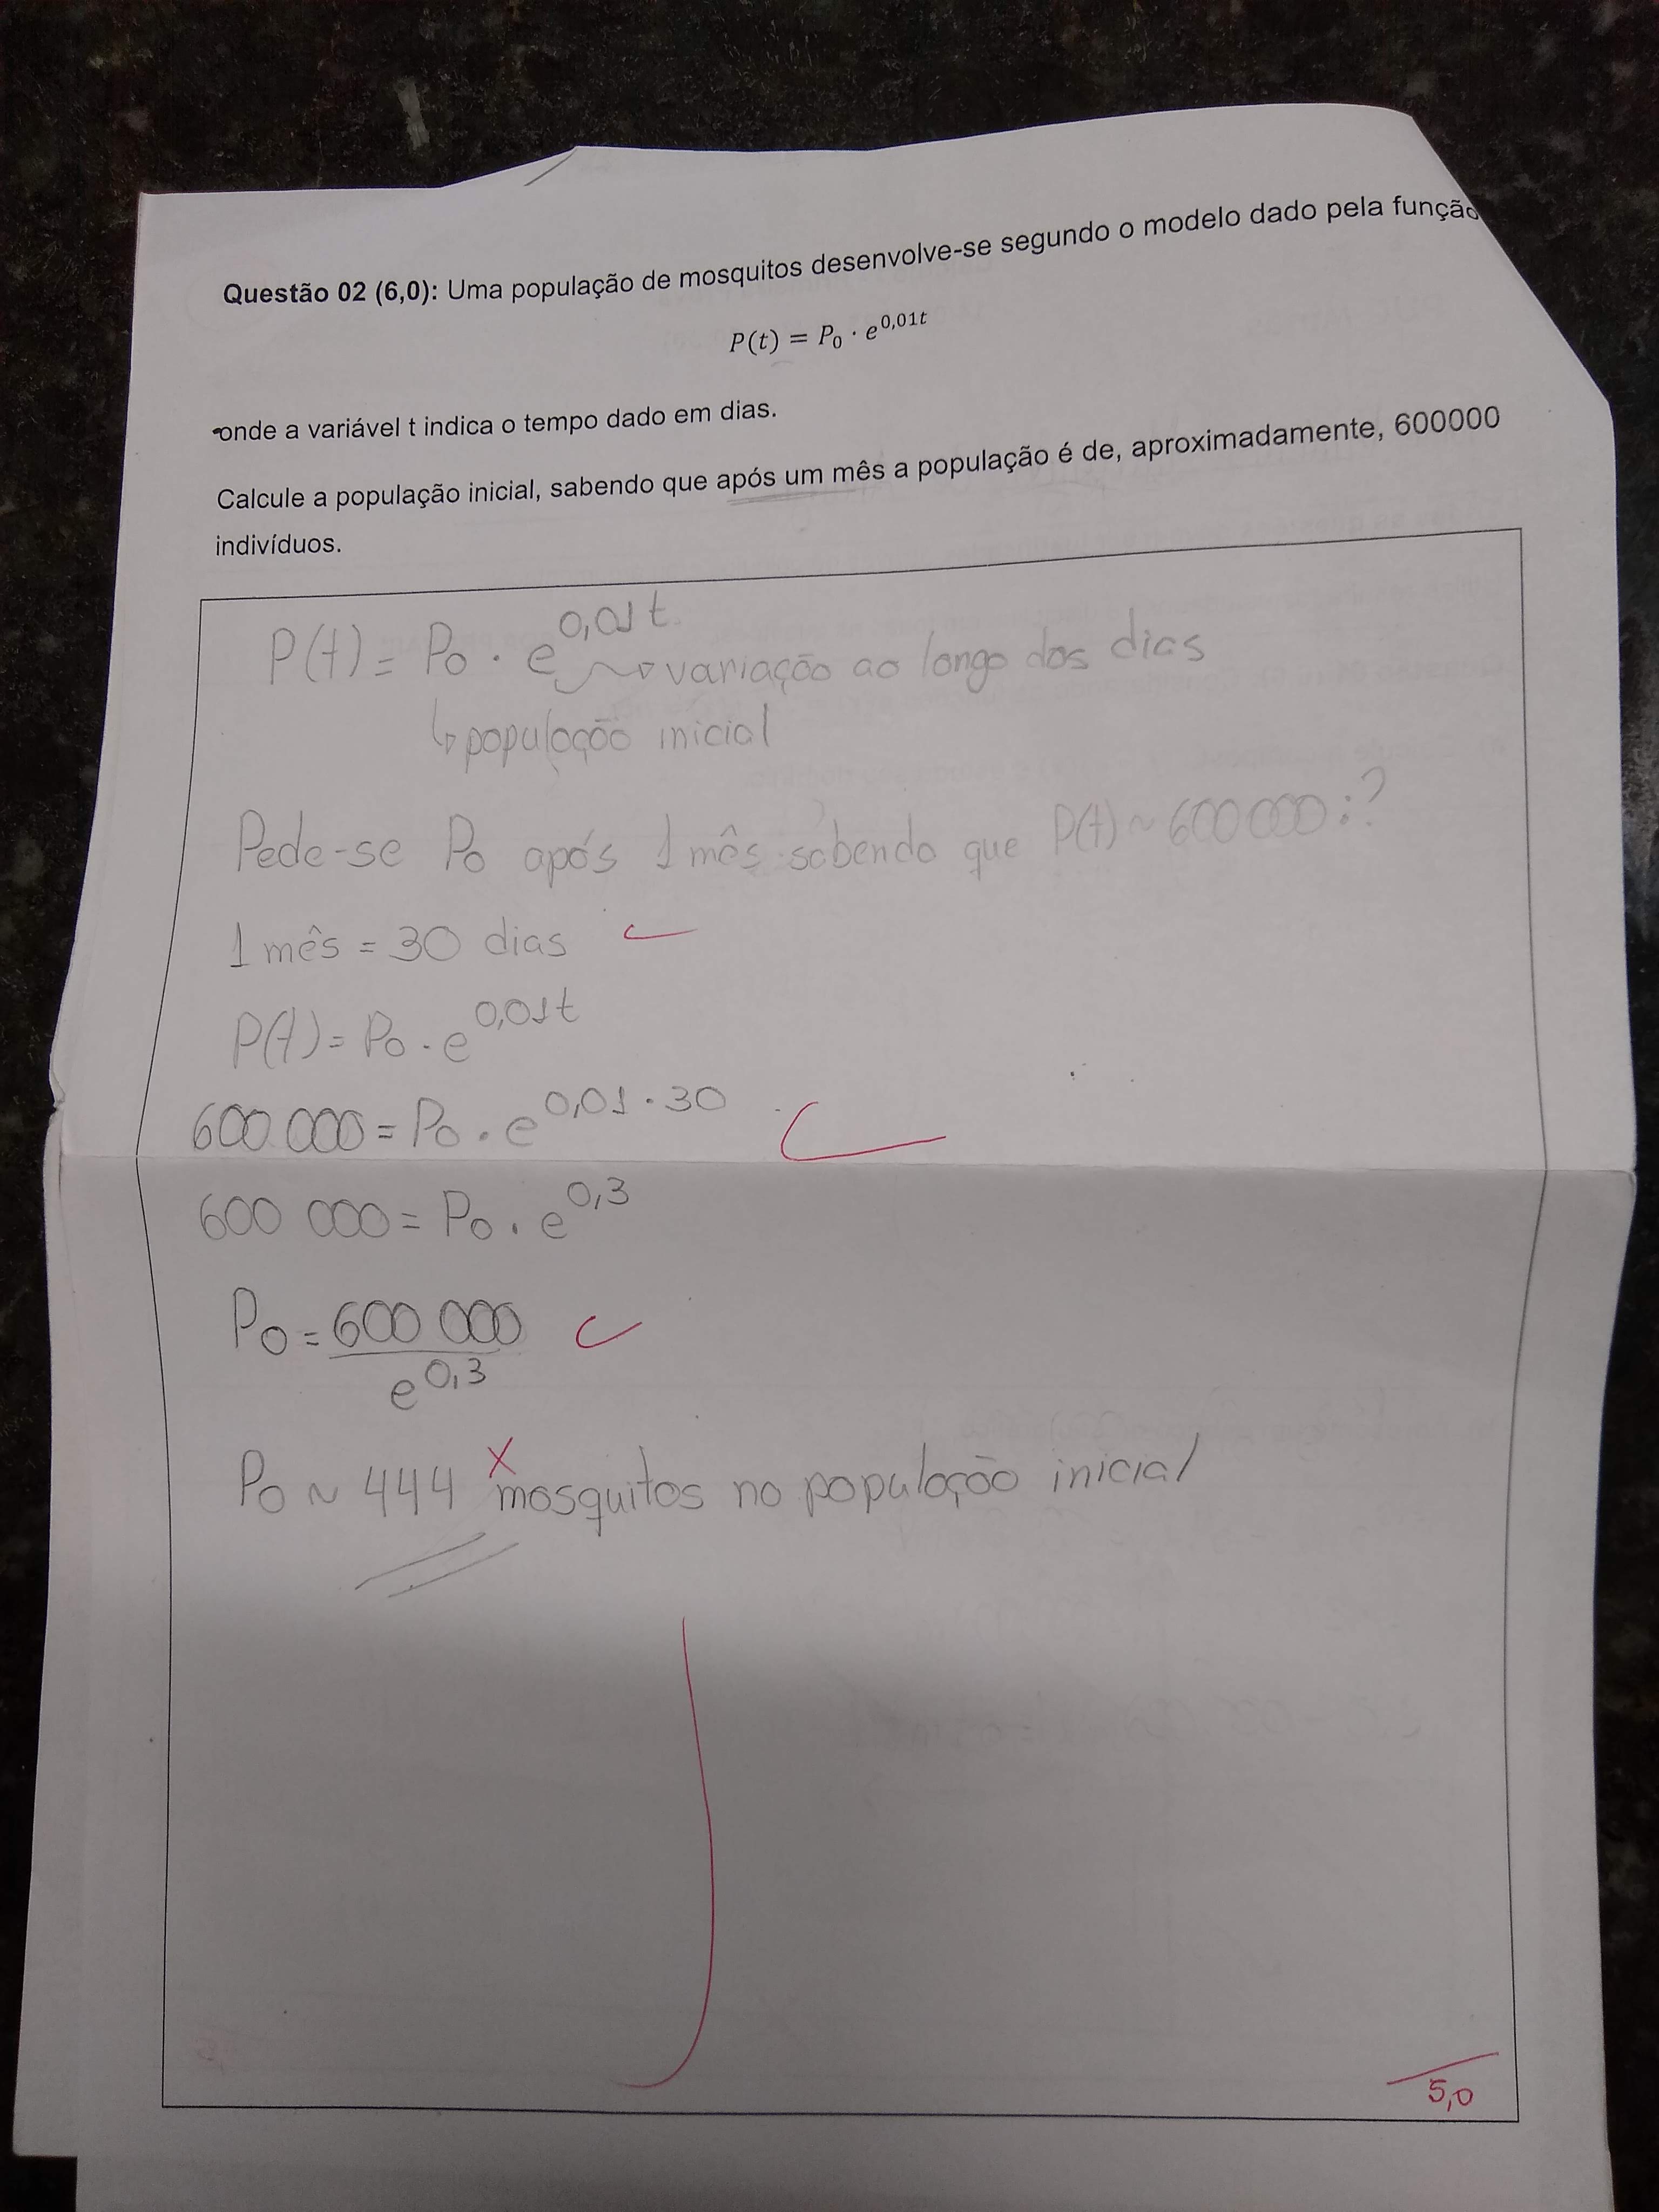 Questão 02 (6,0): Uma população de mosquitos desenvolve-se segundo o modelo dado pela função
P(t) = P₀ · e^0,01t
onde a variável t indica o tempo dado em dias.
Calcule a população inicial, sabendo que após um mês a população é de, aproximadamente, 600000
indivíduos.
P(t) = P₀ · e^0,01t → variação ao longo dos dias
↳ população inicial
Pede-se P₀ após 1 mês sabendo que P(t) ~ 600 000 :?
1 mês = 30 dias
P(t) = P₀ · e^0,01t
600 000 = P₀ · e^0,01 · 30
600 000 = P₀ · e^0,3
P₀ = 600 000
e^0,3
P₀ ~ 444 mosquitos no população inicial
5,0